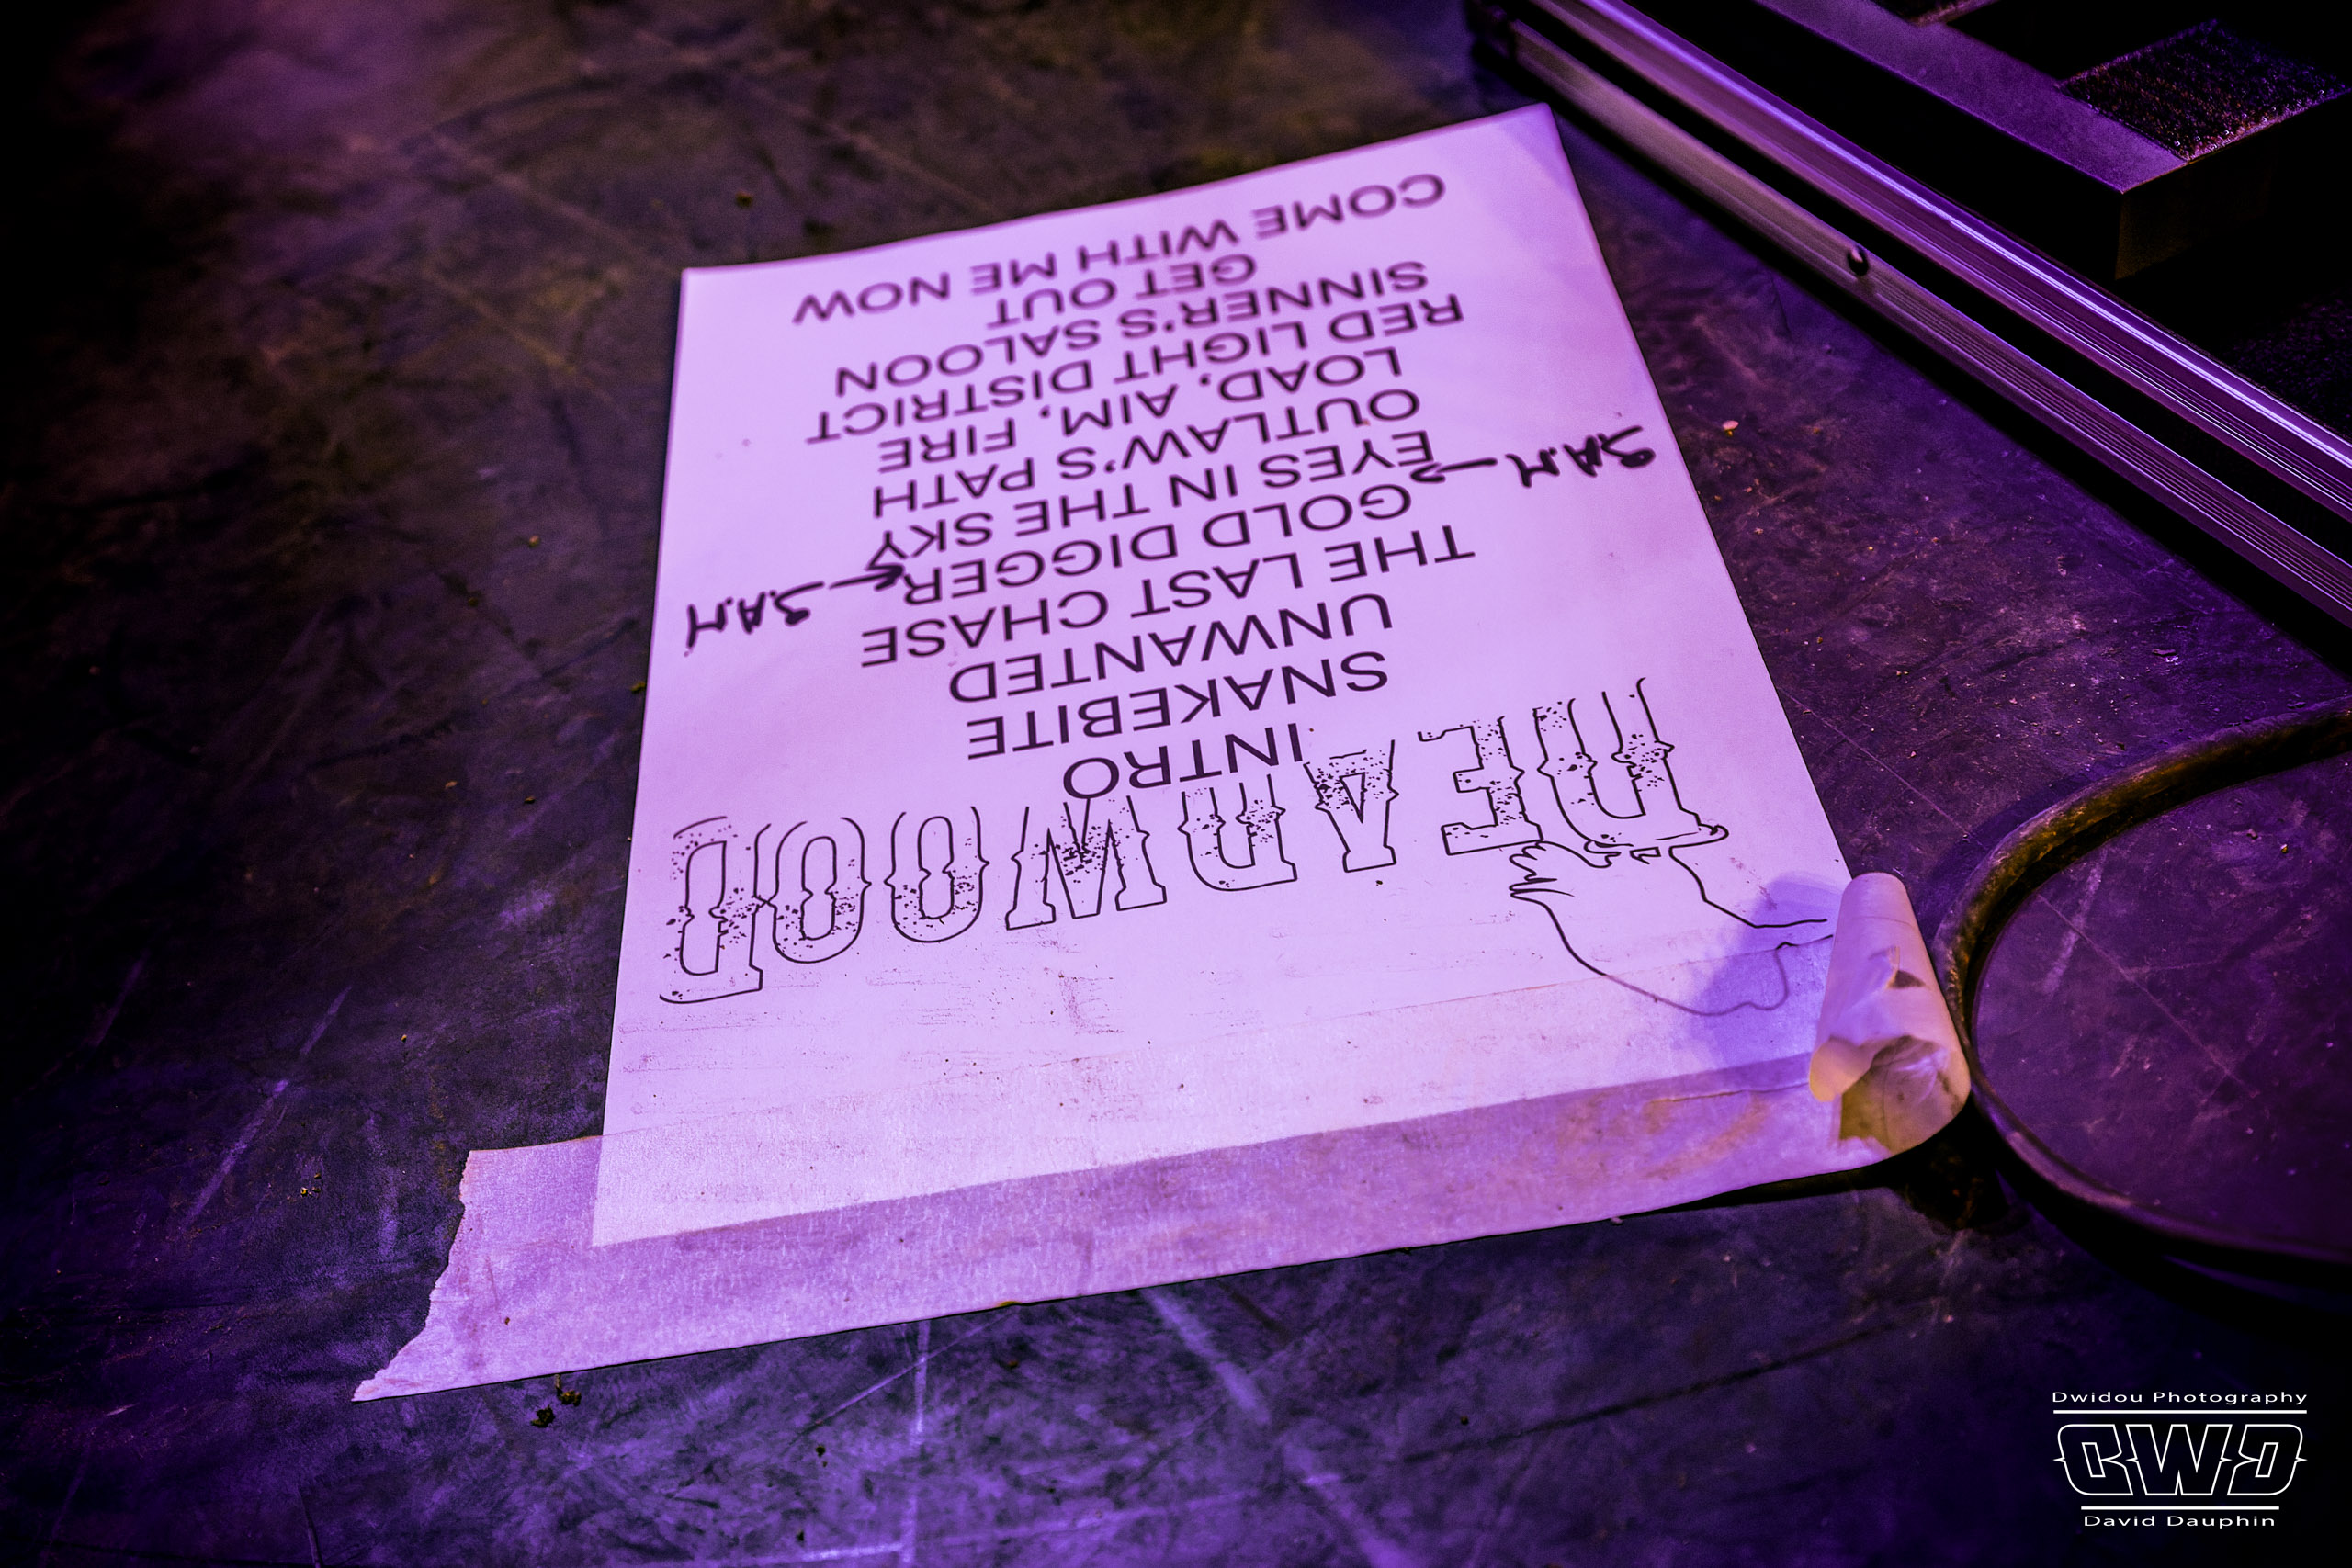 DEADWOOD
INTRO
SNAKEBITE
UNWANTED
THE LAST CHASE
GOLD DIGGER
S.A.M → EYES IN THE SKY ← S.A.M
OUTLAW'S PATH
LOAD, AIM, FIRE
RED LIGHT DISTRICT
SINNER'S SALOON
GET OUT
COME WITH ME NOW
Dwidou Photography
DWD
David Dauphin